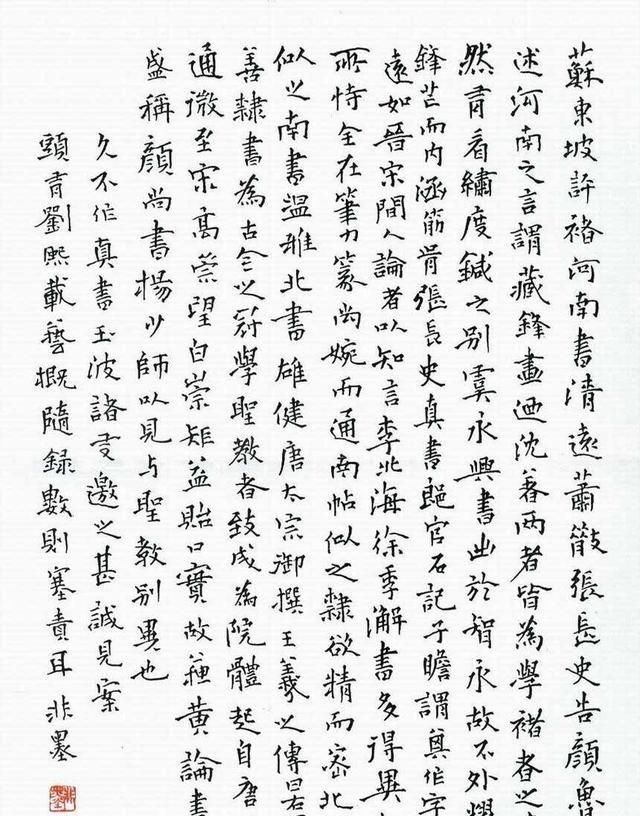 蘇東坡評褚河南書清遠蕭散張長史告顏魯
述河南之言謂藏鋒畫迺沈著兩者皆為學褚者之
然有看繡度鍼之別虞永興書出於智永故不外燿
鋒芒而内涵筋骨張長史真書郎官石記子瞻謂其作字
遠如晉宋間人論者以知言李北海徐季海書多得異
所恃全在筆力篆尚婉而通南帖似之隸欲精而密北
似之南書溫雅北書雄健唐太宗御撰王羲之傳曰
善隸書為古今之冠學聖教者致成為院體起自唐
通微至宋高崇望白崇矩益貽口實故蘇黃論書
盛稱顏尚書楊少師以見与聖教別異也
久不作真書玉波諸<br>邀之甚誠見案
頭有劉熙載藝概隨錄數則塞責耳非墨